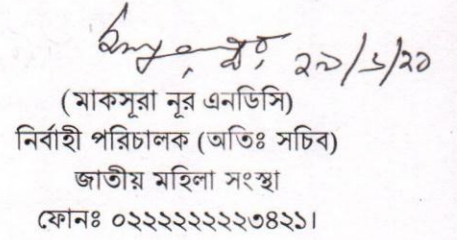 ২৯/১/২১
(মাকসূরা নূর এনডিসি)
নির্বাহী পরিচালক (অতিঃ সচিব)
জাতীয় মহিলা সংস্থা
ফোনঃ ০২২২২২২২২৩৪২১।